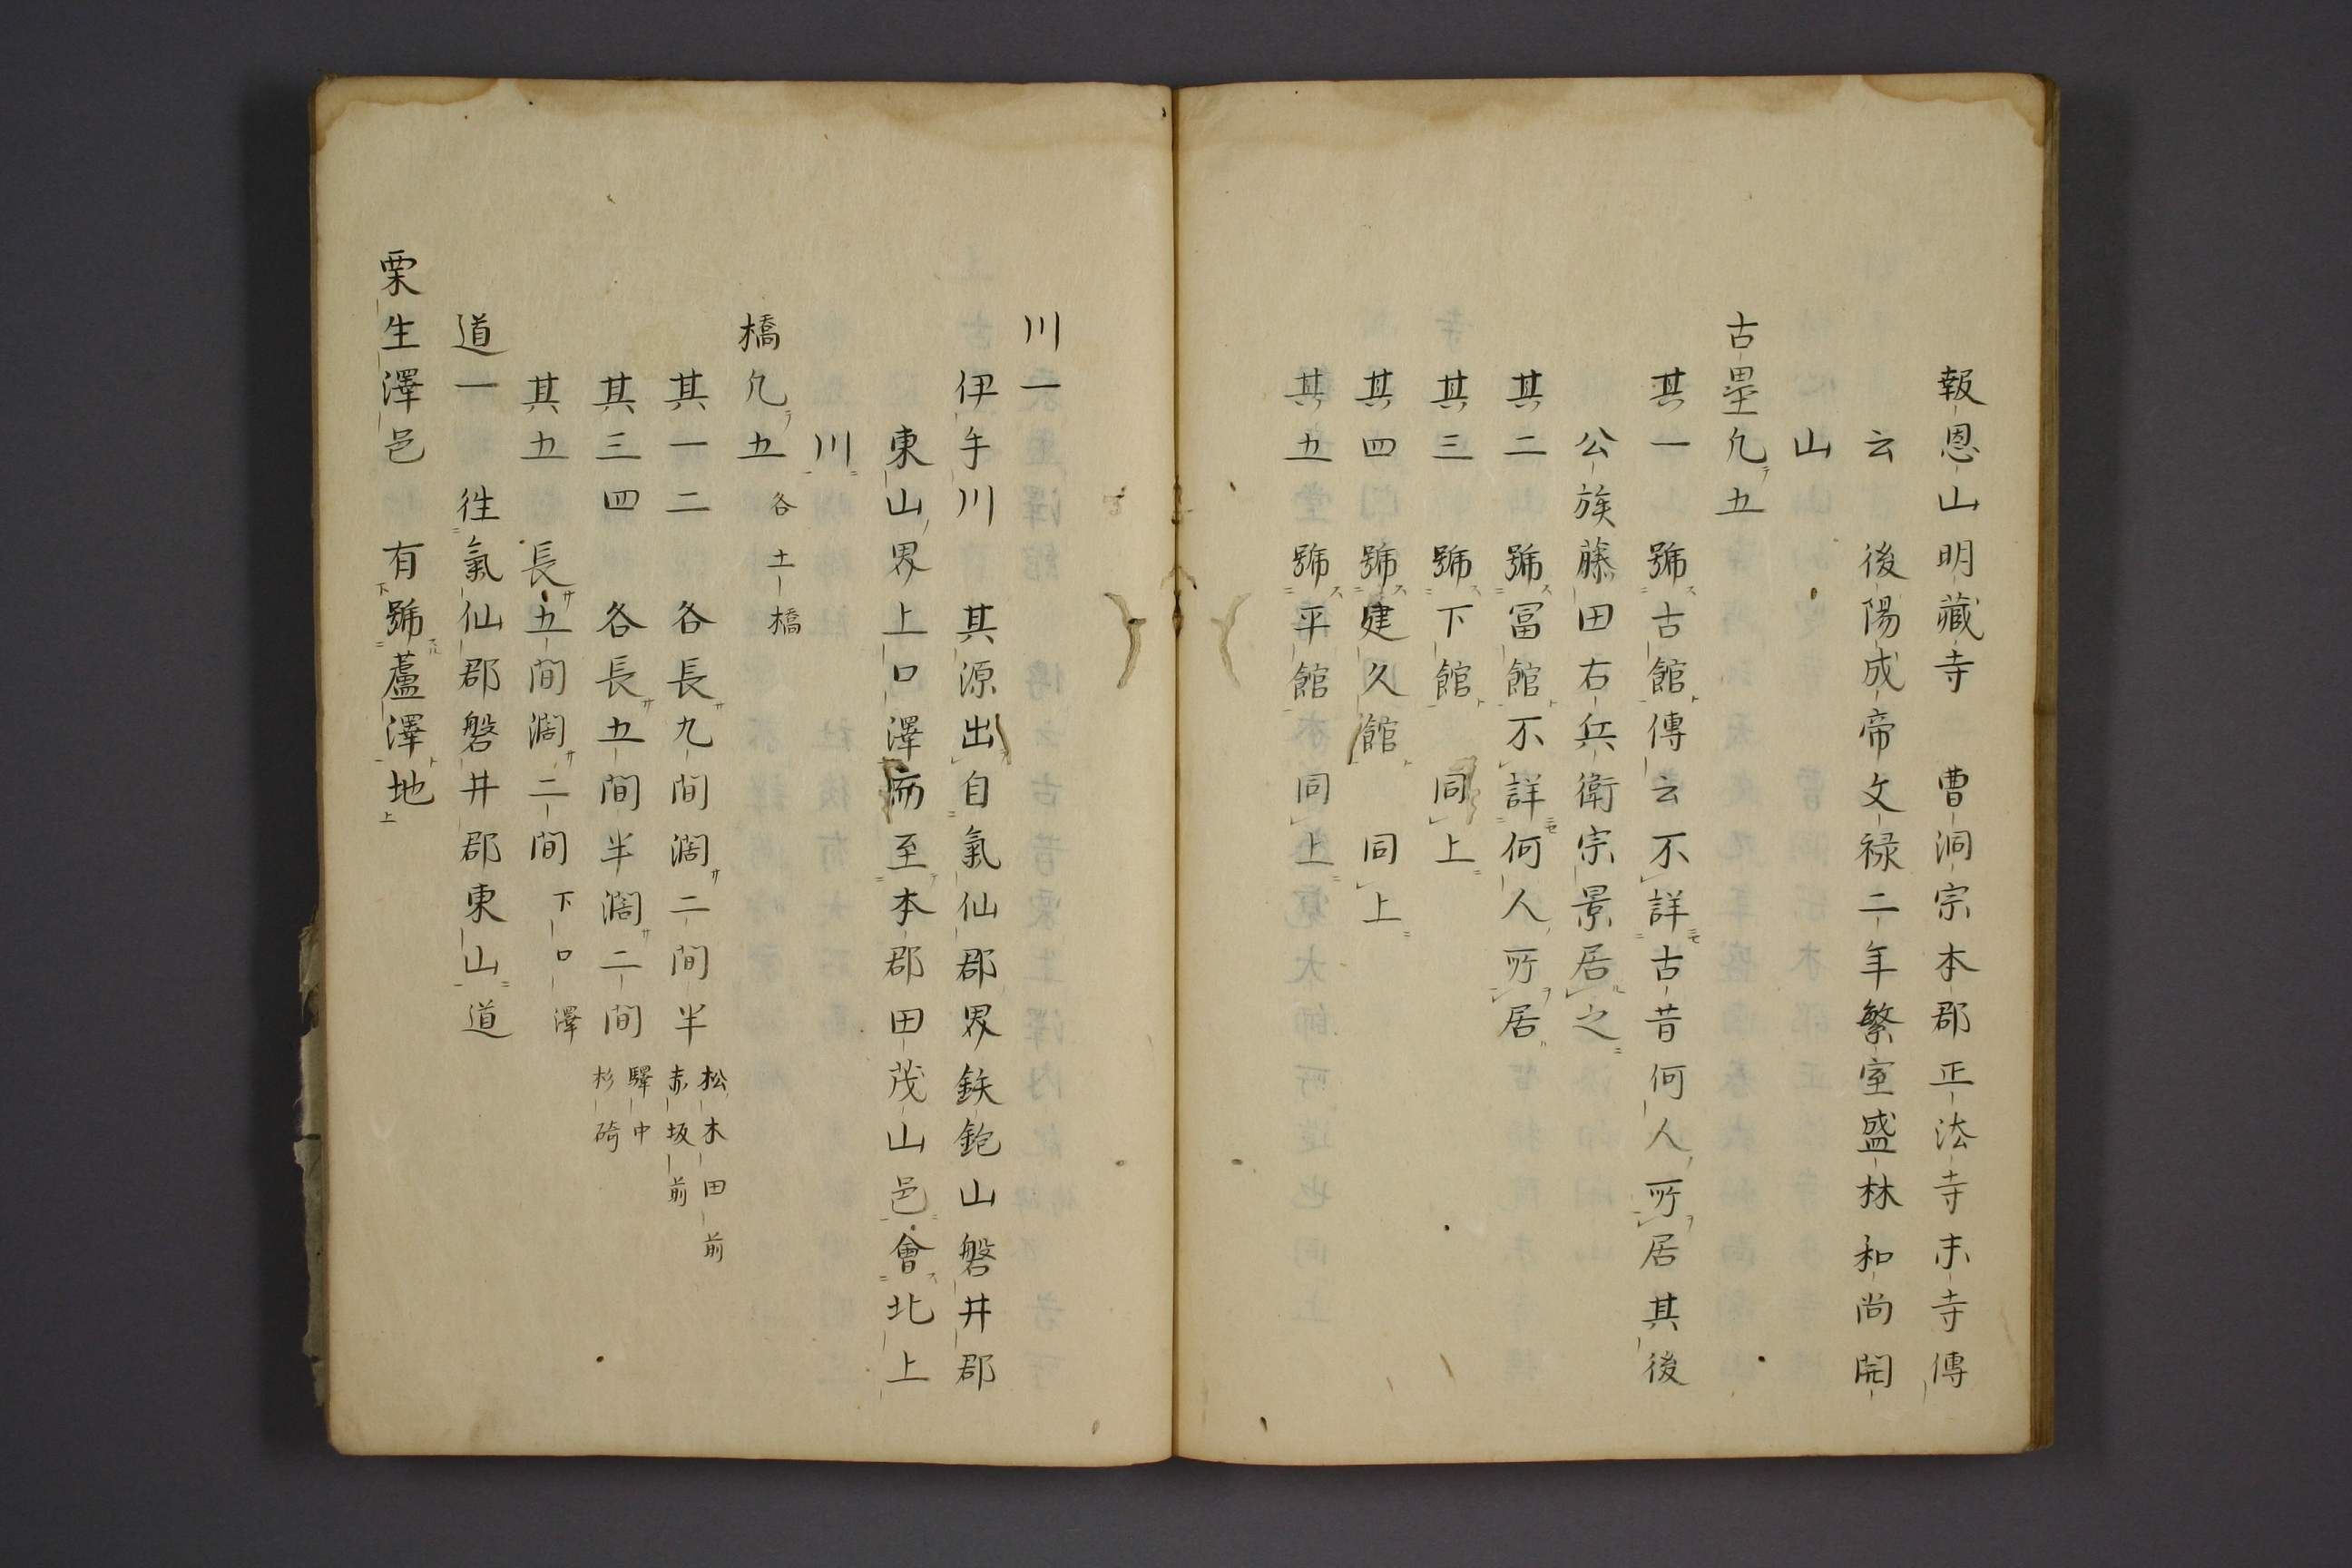 報恩山明藏寺　曹洞宗本郡正法寺末寺傳
云　後陽成帝文禄二年繁室盛林和尚開
山
古壘凡五
其一　號古館傳云不詳古昔何人所居其後
公族藤田右兵衛宗景居之
其二　號冨館不詳何人所居
其三　號下館　同上
其四　號建久館　同上
其五　號平館　同上
川一
伊手川　其源出自氣仙郡界鉄鉋山磐井郡
東山界上口澤而至本郡田茂山邑會北上
川
橋凡五　各土橋
其一二　各長九間濶二間半　松木田前　赤坂前
其三四　各長五間半濶二間　驛中　杉碕
其五　長五間濶二間　下口澤
道一　徃氣仙郡磐井郡東山道
栗生澤邑　有號蘆澤地